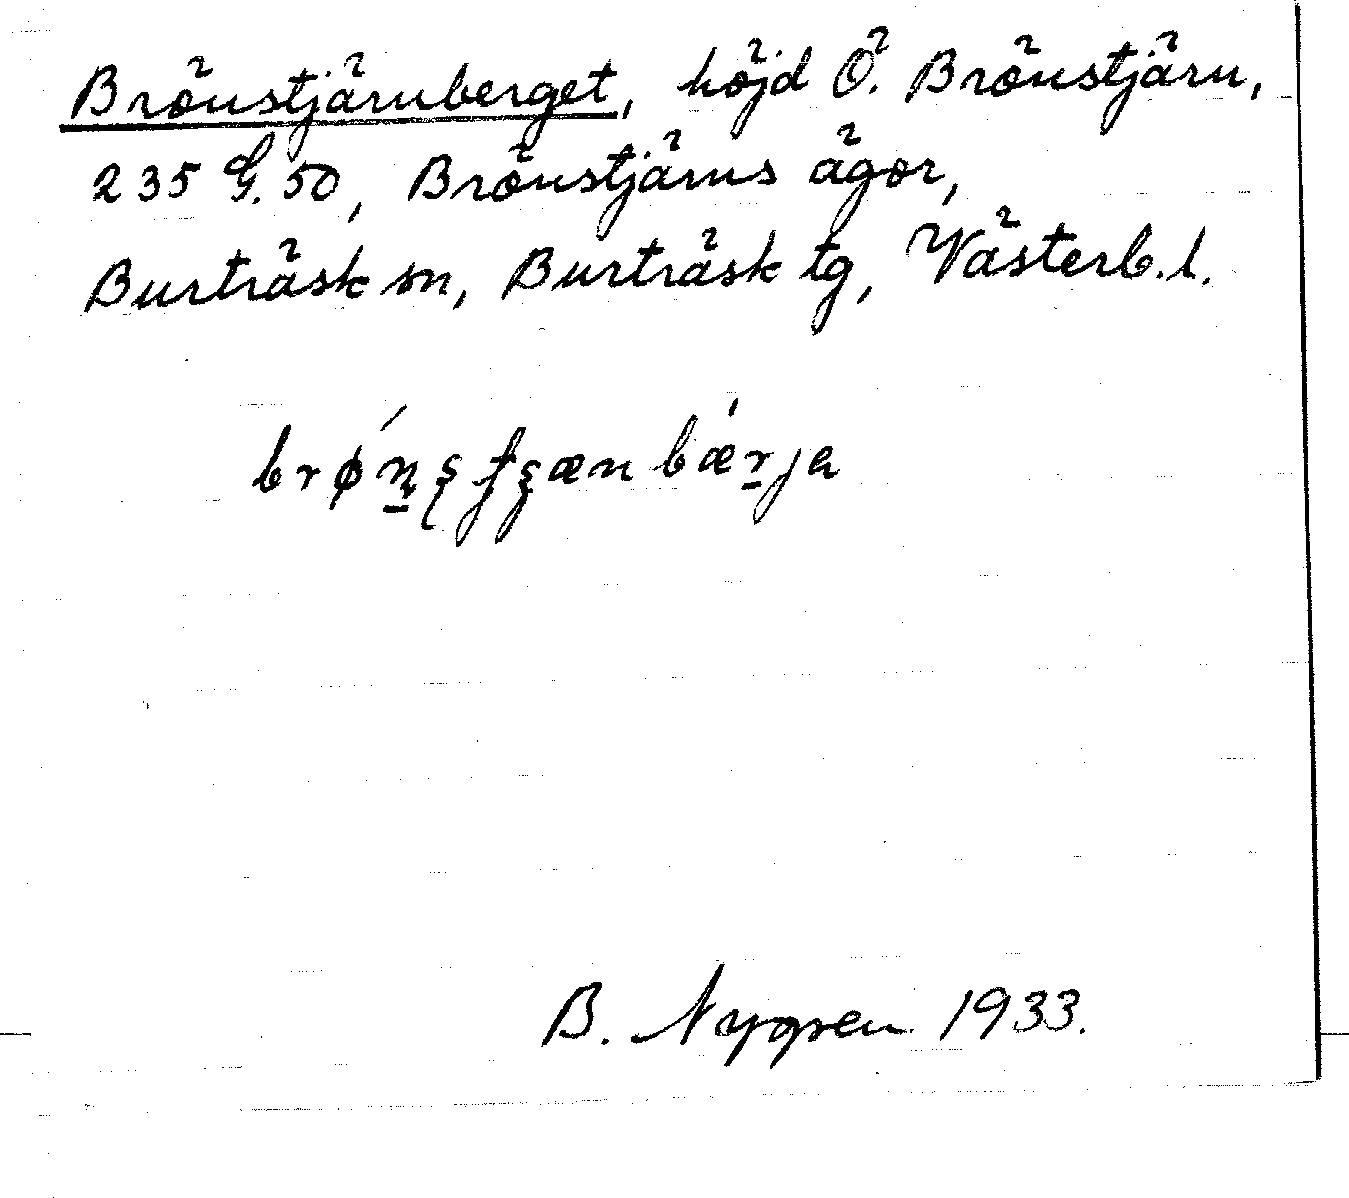 Brönstjärnberget, höjd Ö. Brönstjärn,
235 G. 50, Brönstjärns ägor,
Burträsk sn, Burträsk tg, Västerb. l.
B. Nygren 1933.